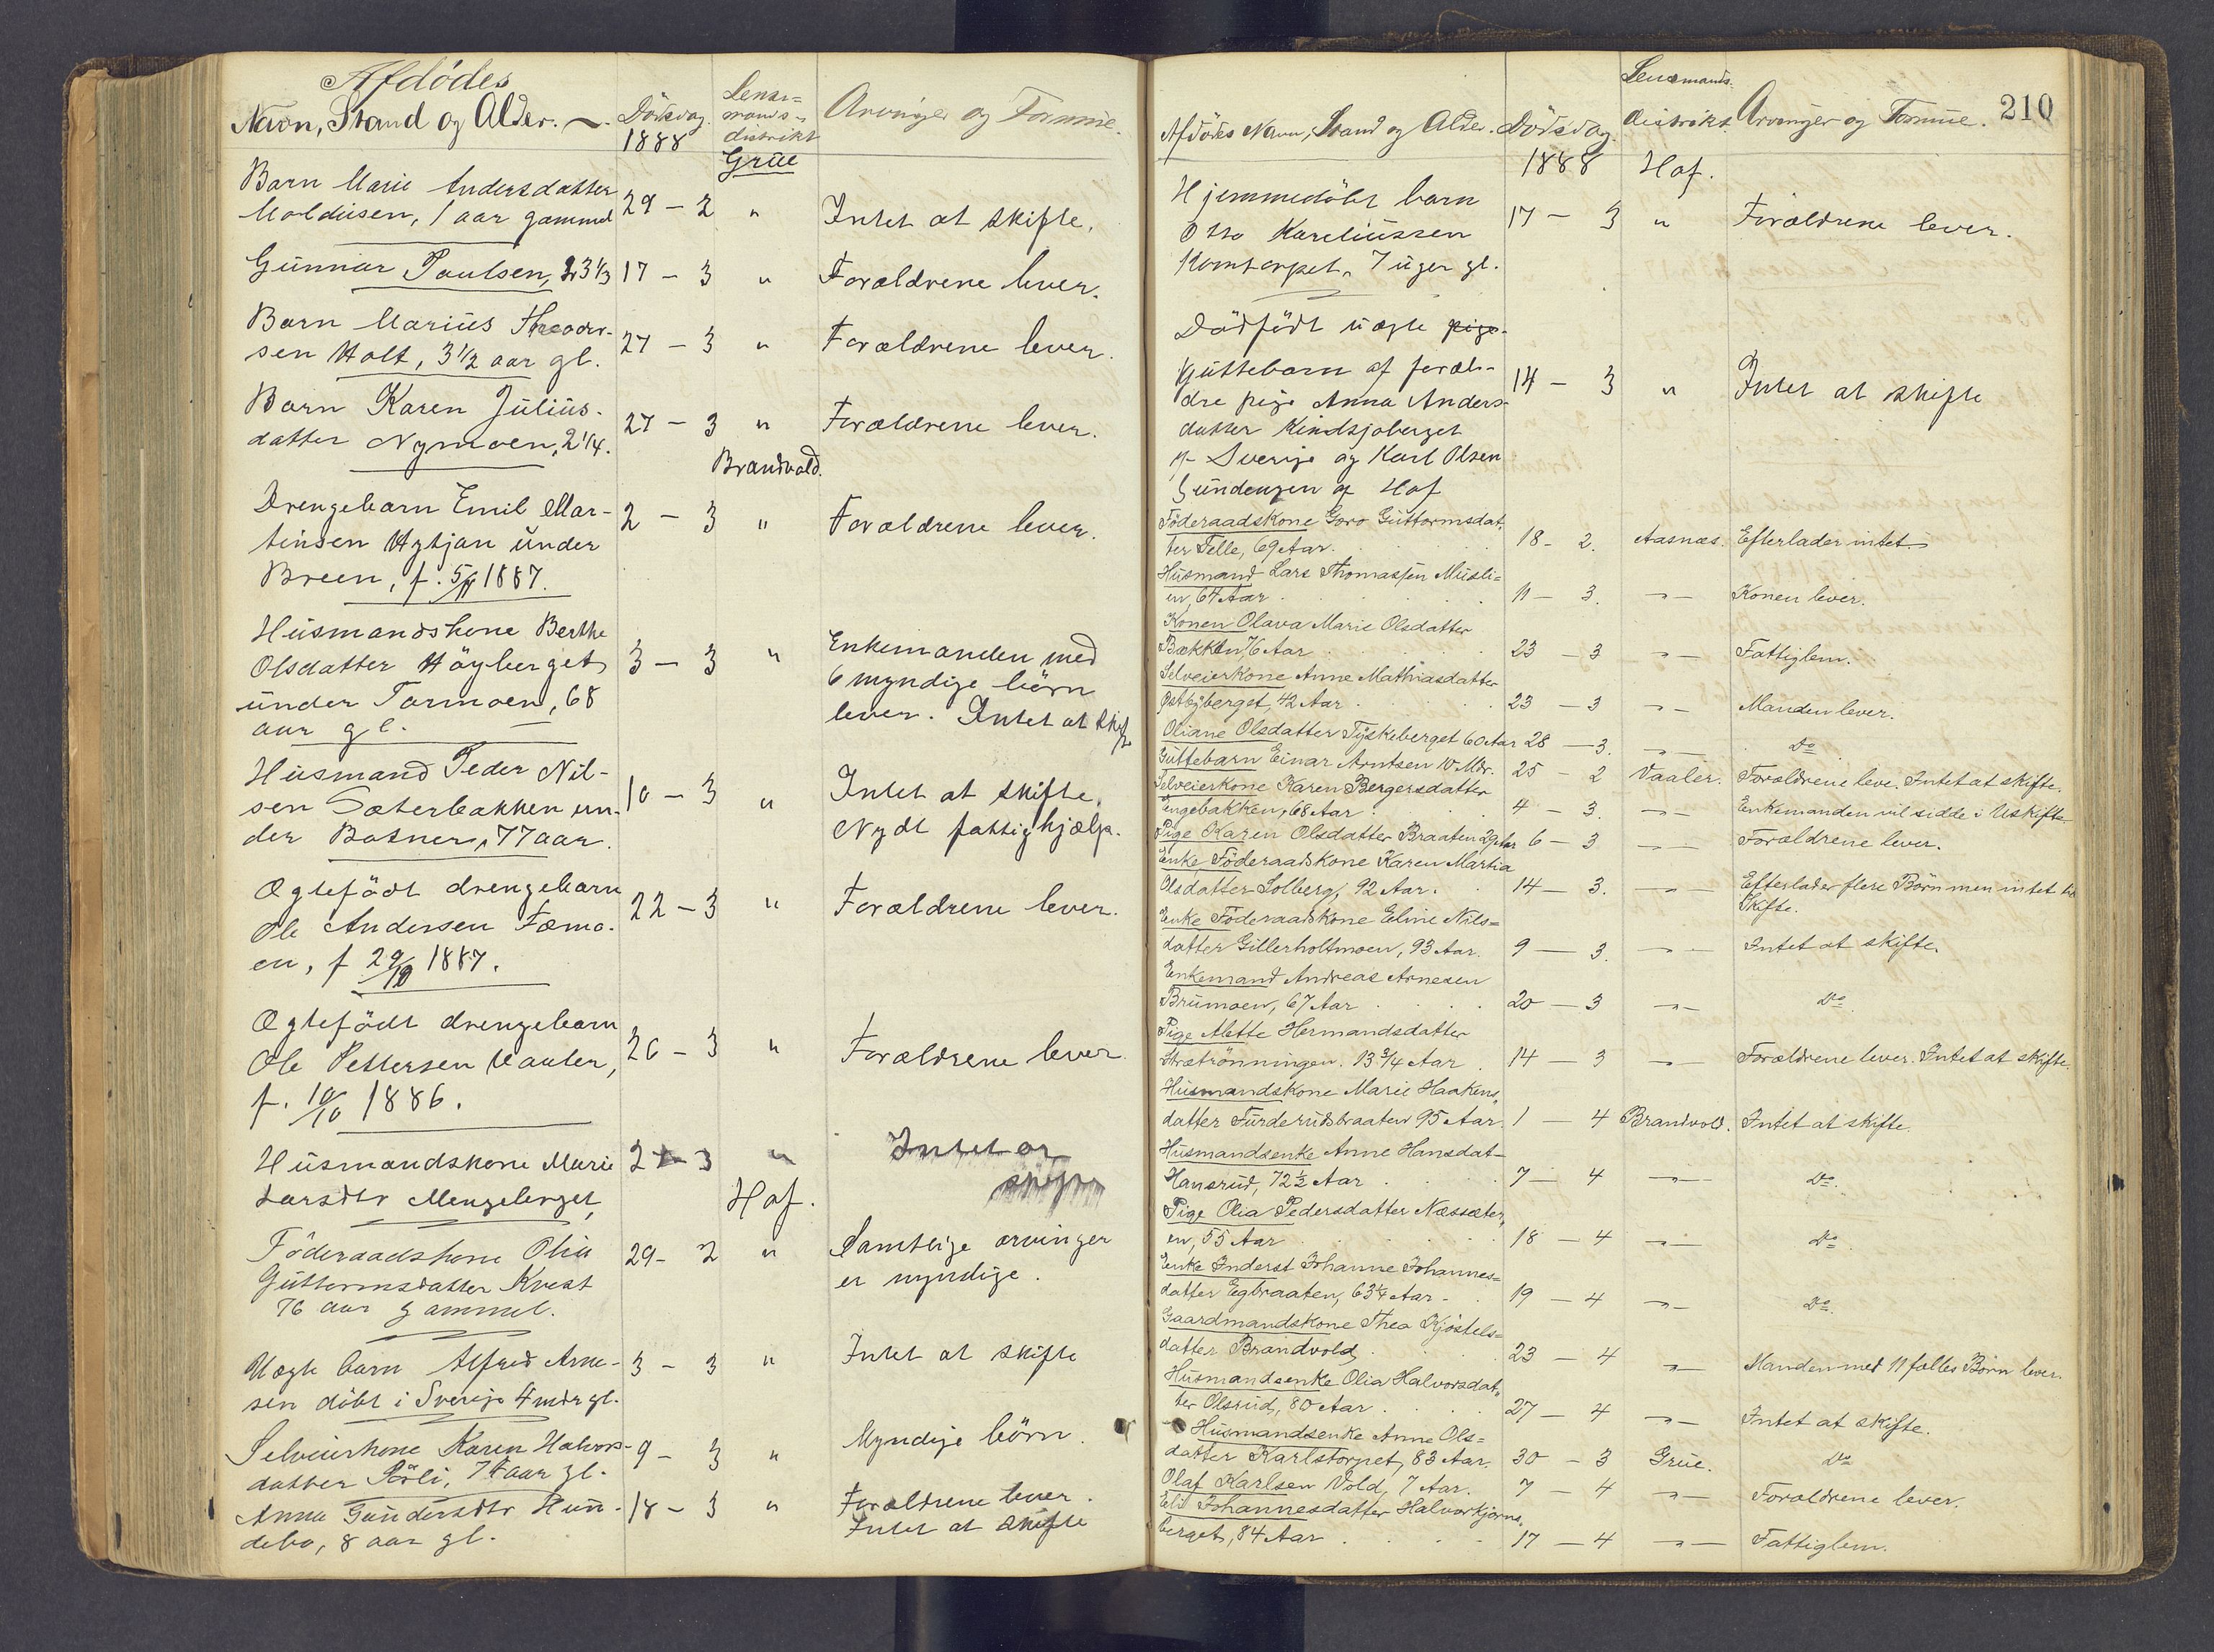 Afdödes
Navn, Stand og Alder. Dödsdag. 1888 Lens=mands=distrikt Arvinger og Formue.
Grue
Barn Marie Andersdatter
Moldusen, 1 aar gammel 29 - 2 " Intet at skifte.
Gunnar Paulsen, 3 1/3 17 - 3 " Forældrene lever.
Barn Marius Theodor-
sen Holt, 3 1/2 aar gl. 27 - 3 " Forældrene lever.
Barn Karen Julius-
datter Nymoen, 2 1/4. 27 - 3 " Forældrene lever.
Brandvold.
Drengebarn Emil Mar- 2 - 3 " Forældrene lever.
tinsen Hytjan under
Breen, f. 5/11 1887.
Husmandskone Berthe
Olsdatter Höyberget 3 - 3 " Enkemanden med
under Tarmoen, 68 6 myndige börn
aar gl. lever. Intet at skifte
Husmand Peder Nil-
sen Sæterbakken un- 10 - 3 " Intet at skifte.
der Botner, 77 aar. Nydt fattighjælp.
Ægtefödt drengebarn
Ole Andersen Fæmo- 22 - 3 " Forældrene lever.
en, f 29/10 1887.
Ægtefödt drengebarn
Ole Pettersen Vaaler, 26 - 3 " Forældrene lever
f. 10/10 1886.
Husmandskone Marie 2 - 3 " Intet at
Larsdtr Mengeberget, skifte
Hof.
Föderaadskone Olia 29 - 2 " Samtlige arvinger
Guttormsdatter Kvest er myndige.
76 aar gammel.
Uægte barn Alfred Arne- 3 - 3 " Intet at skifte
sen döbt i Sverige 4 mdr gl.
Selveierkone Karen Halvors- 9 - 3 " Myndige börn.
datter Pöli, 74 aar gl.
Anna Gundersdtr Hun- 18 - 3 " Forældrene lever.
debo, 8 aar gl. Intet at skifte
210
Afdödes Navn, Stand og Alder. Dödsdag. 1888 Lensmands. distrikt. Arvinger og Formue.
Hof.
Hjemmedöbt barn
Otto Kareliussen 17 - 3 " Forældrene lever.
Komtorpet, 7 uger gl.
Dödfödt uægte pige-
Guttebarn af foræl- 14 - 3 " Intet at skifte
dre pige Anna Anders-
datter Kindsjoberget
af Sverige og Karl Olsen
Gundengen af Hof
Föderaadskone Goro Guttormsdat-
ter Telle, 69 Aar. 18 - 2. Aasnæs. Efterlader intet.
Husmand Lars Thomassen Musli=
en, 64 Aar 11 - 3. -"- Konen lever.
Konen Olava Marie Olsdatter
Bækken 76 Aar 23 - 3 -"- Fattiglem.
Selveierkone Anne Mathiasdatter
Östbyberget, 42 Aar. 23 - 3 -"- Manden lever.
Oliane Olsdatter Tyskeberget 60 Aar 28 - 3. -"- Do
Guttebarn Einar Arntsen 10 Mdr. 25 - 2 Vaaler. Forældrene leve. Intet at skifte.
Selveierkone Karen Bergersdatter
Engebakken, 68 Aar 4 - 3. -"- Enkemanden vil sidde i Uskifte
Pige Karen Olsdatter Braaten 29 Aar 6 - 3 -"- Forældrene lever.
Enke Föderaadskone Karen Martia
Olsdatter Solberg, 92 Aar. 14 - 3. -"- Efterlader flere Börn men intet til
Skifte.
Enke Föderaadskone Eline Nils=
datter Gillerholtmoen, 93 Aar. 9 - 3. -"- Intet at skifte.
Enkemand Andreas Arnesen
Brumoen, 67 Aar 20 - 3 -"- Do
Pige Alette Hermandsdatter
Strætrönningen. 13 3/4 Aar 14 - 3 -"- Forældrene lever. Intet at skifte.
Husmandskone Marie Haakens-
datter Furderudsbraaten 95 Aar. 1 - 4 Brandvold. Intet at skifte.
Husmandsenke Anne Hansdat-
Hansrud, 72 1/2 Aar 7 - 4 -"- Do.
Pige Olia Pedersdatter Næssæter-
en, 55 Aar 18 - 4 -"- Do
Enke Inderst Johanne Johannes=
datter Egbraaten, 63 1/4 Aar 19 - 4 -"- Do.
Gaardmandskone Thea Kjöstels=
datter Brandvold, 23 - 4 -"- Manden med 11 fælles Börn lever.
Husmandsenke Olia Halvorsdat-
ter Olsrud, 80 Aar 27 - 4 -"- Intet at skifte.
Husmandsenke Anne Ols=
datter Karlstorpet, 83 Aar. 30 - 3 Grue. Do
Olaf Karlsen Vold, 7 Aar. 7 - 4 -"- Forældrene lever.
Eli Johannesdatter Halvorkjorns-
berget, 84 Aar 17 - 4 -"- Fattiglem.